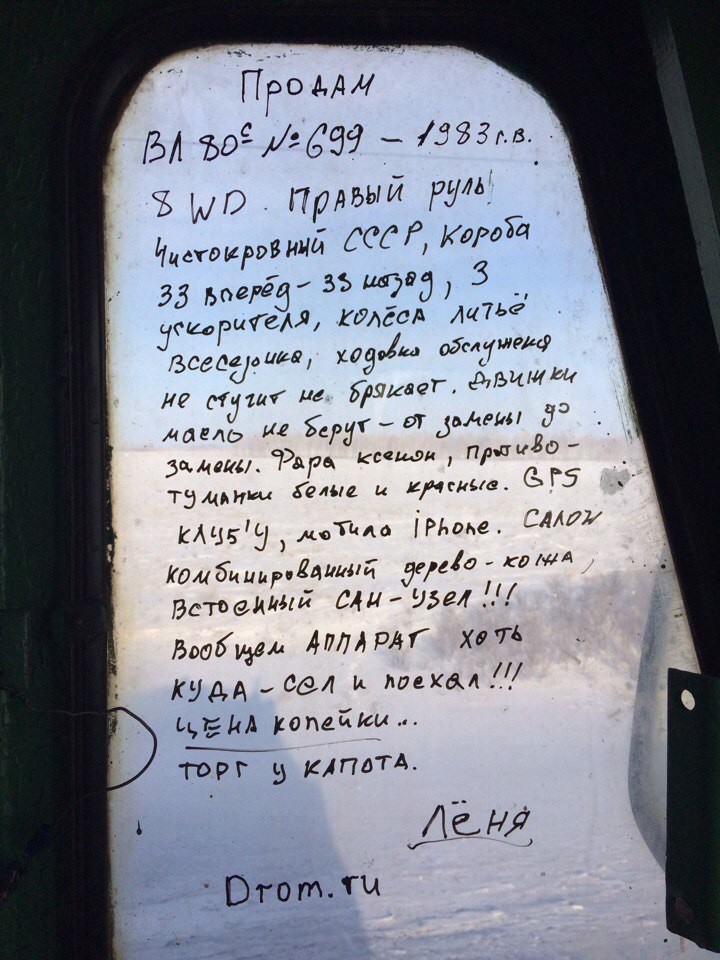 Продам
ВЛ 80с № 699 – 1983 г.в.
8 WD. Правый руль!
Чистокровный СССР, короба
33 вперёд – 33 назад, 3
ускорителя, колёса литьё
всесезонка, ходовка обслужена
не стучит не брякает. Движки
масло не берут – от замены до
замены. Фара ксенон, противо-
туманки белые и красные. GPS
КЛУБ'У, мобила iPhone. Салон
комбинированный дерево-кожа,
встоенный сан-узел!!!
Вообщем аппарат хоть
куда – сел и поехал!!!
Цена копейки...
Торг у капота.
Лёня
Drom.ru